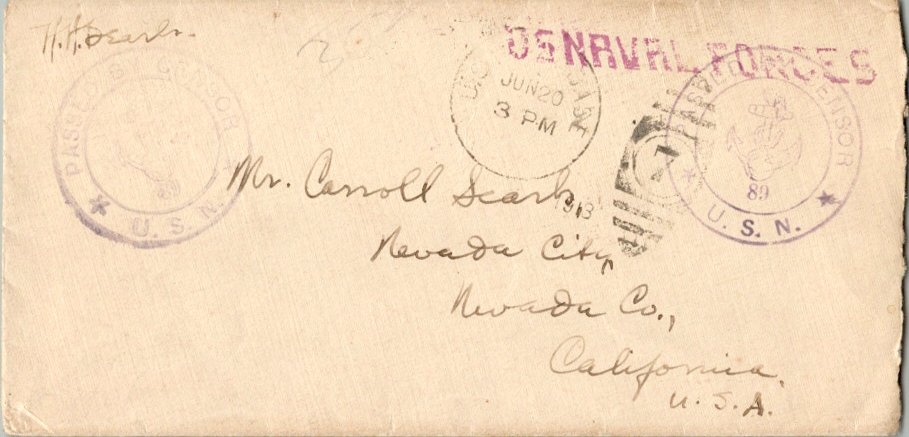 H.H. Searls
US NAVAL FORCES
PASSED BY CENSOR
89
U. S. N.
JUN 20
3 PM
1918
7
PASSED BY CENSOR
89
U. S. N.
Mr. Carroll Searls,
Nevada City,
Nevada Co.,
California.
U. S. A.